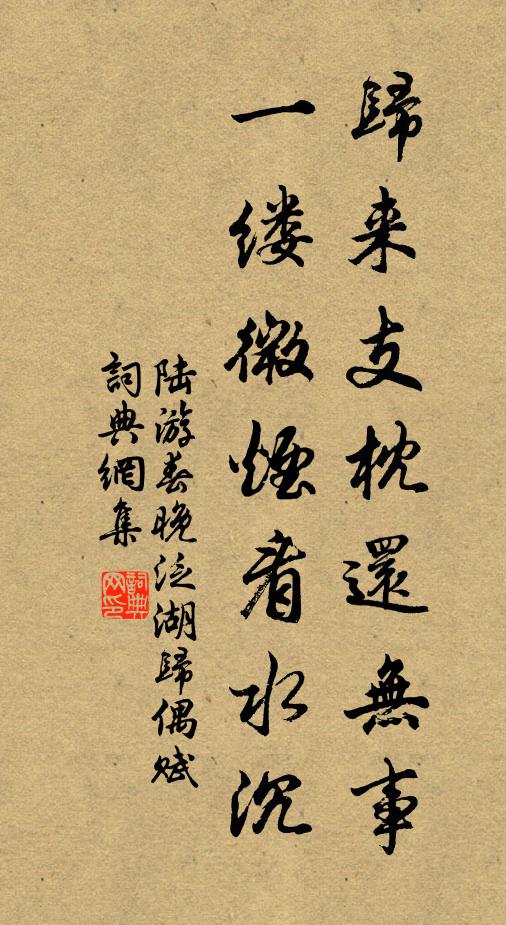 歸来支枕還無事
一缕微煙看水沉
陆游春晚泛湖歸偶赋
詞典網集
詞典
网印